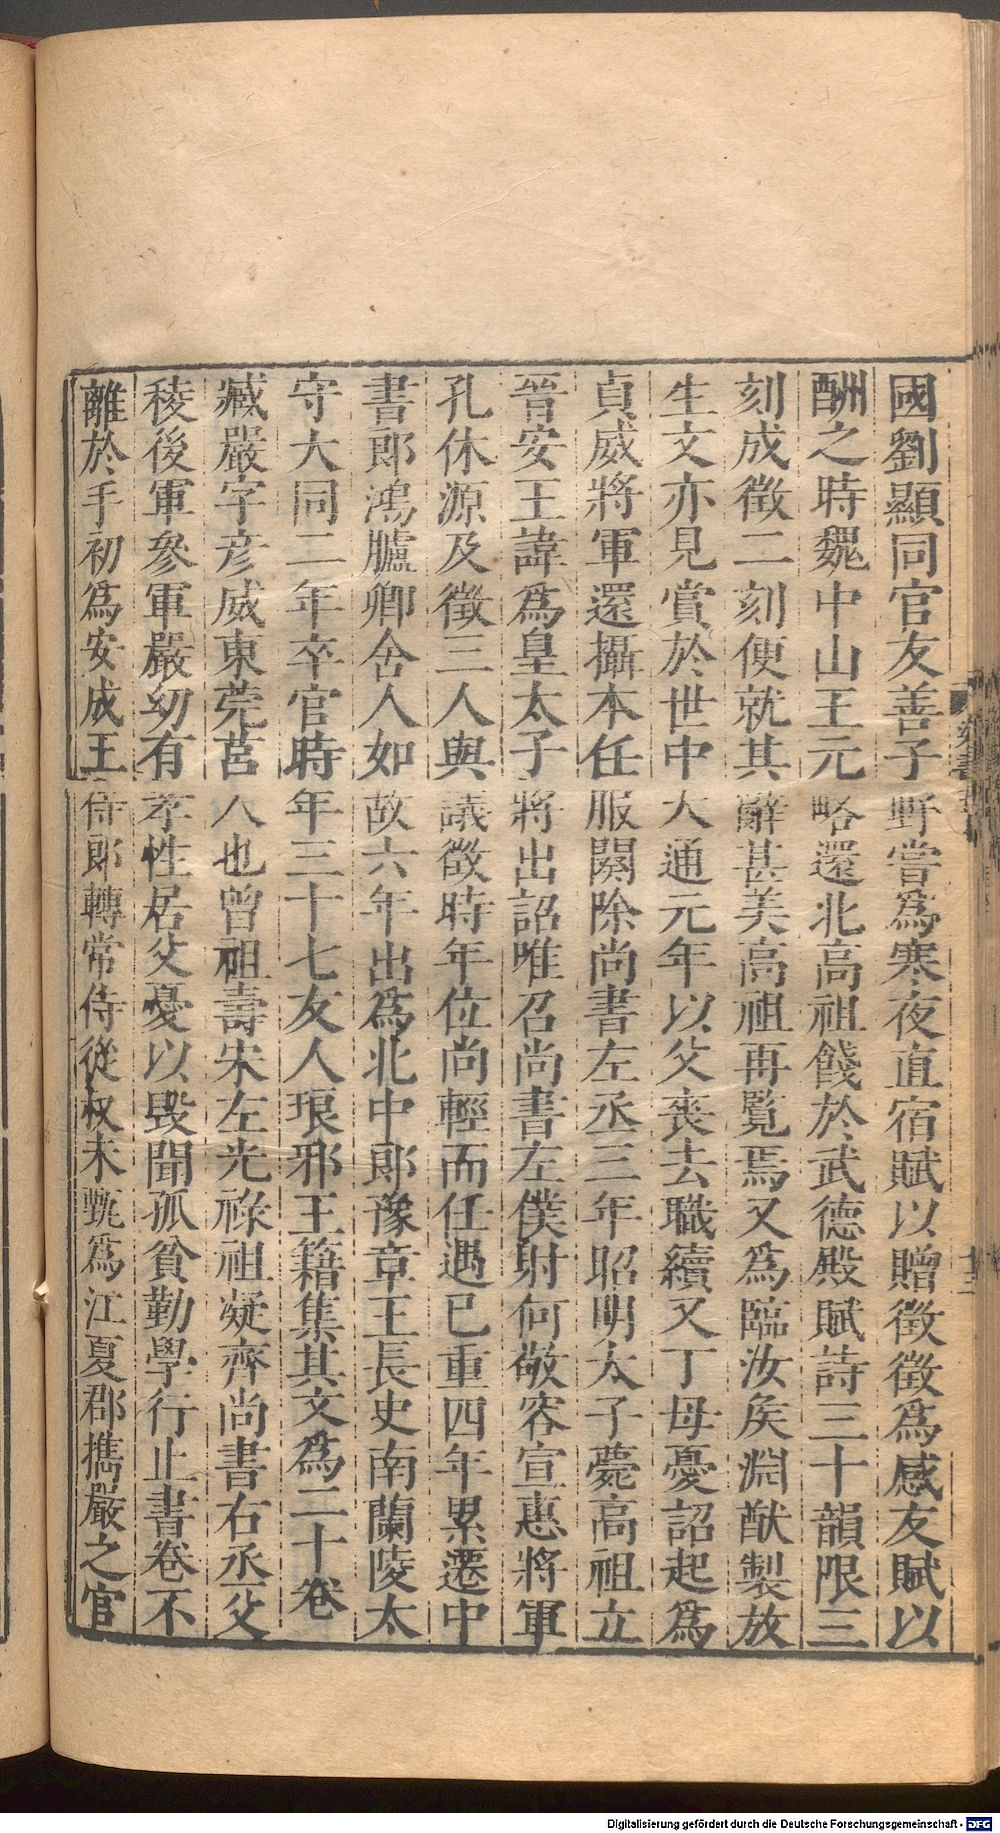 國劉顯同官友善子野嘗爲寒夜直宿賦以贈徵徵爲感友賦以
酬之時魏中山王元略還北高祖餞於武德殿賦詩三十韻限三
刻成徵二刻便就其辭甚美高祖再覽焉又爲臨汝侯淵猷製放
生文亦見賞於世中大通元年以父喪去職續又丁母憂詔起爲
貞威將軍還攝本任服闋除尚書左丞三年昭明太子薨高祖立
晉安王諱爲皇太子將出詔唯召尚書左僕射何敬容宣惠將軍
孔休源及徵三人與議徵時年位尚輕而任遇已重四年累遷中
書郎鴻臚卿舍人如故六年出爲北中郎豫章王長史南蘭陵太
守大同二年卒官時年三十七友人琅邪王籍集其文爲二十卷
臧嚴字彥威東莞莒人也曾祖壽宋左光祿祖凝齊尚書右丞父
稜後軍參軍嚴幼有孝性居父憂以毀聞孤貧勤學行止書卷不
離於手初爲安成王侍郎轉常侍從叔未甄爲江夏郡攜嚴之官
Digitalisierung gefördert durch die Deutsche Forschungsgemeinschaft - DFG